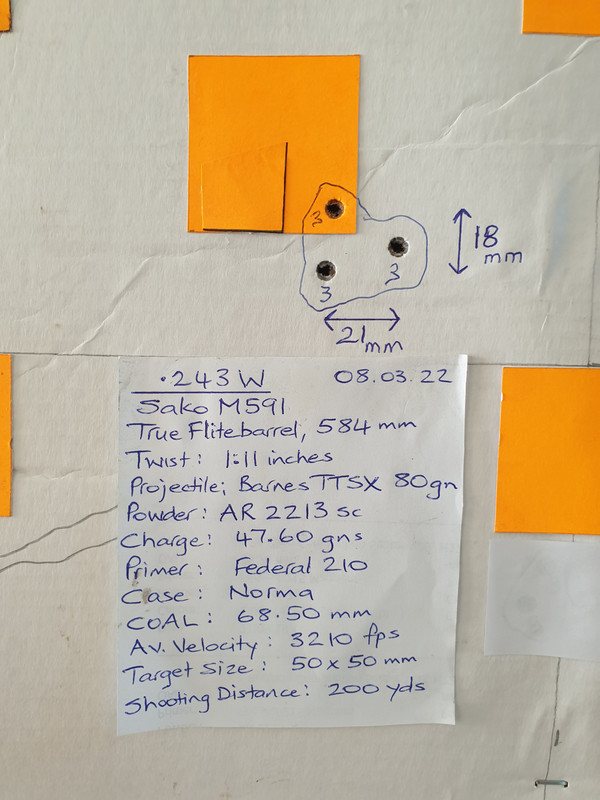 3
3
3
18
mm
21mm
.243 W 08.03.22
Sako M591
True Flite barrel, 584 mm
Twist: 1:11 inches
Projectile; Barnes TTSX 80gn
Powder: AR 2213 sc
Charge: 47.60 gns
Primer: Federal 210
Case: Norma
COAL: 68.50 mm
Av. Velocity: 3210 fps
Target Size: 50 x 50 mm
Shooting Distance: 200 yds